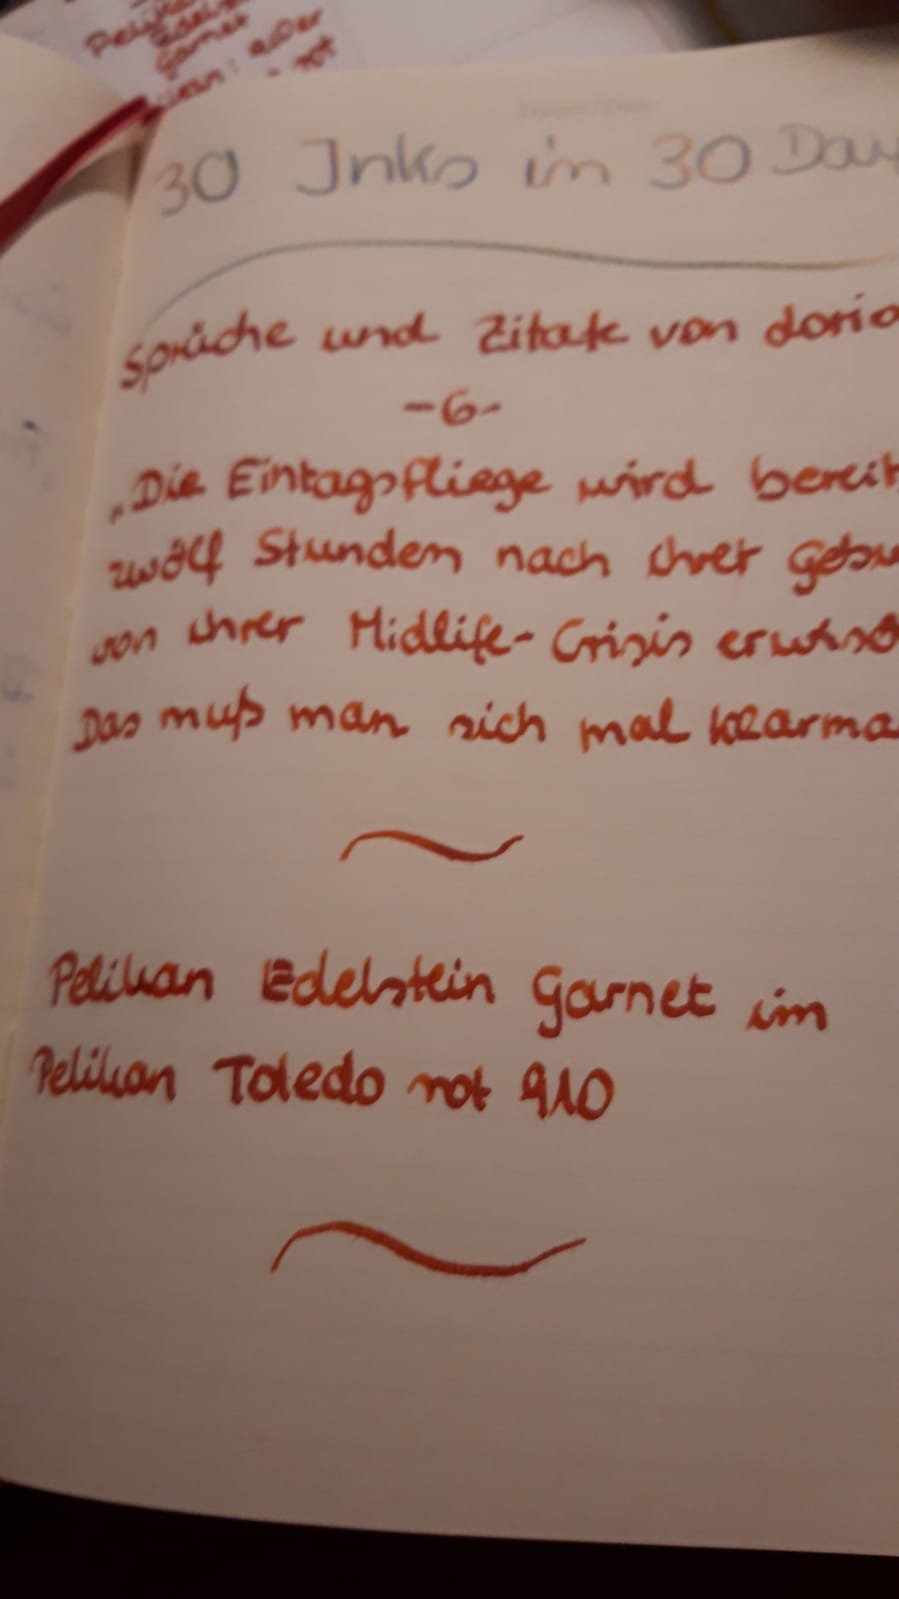 Edelst
Garnet
30 Inks in 30 Day
Sprüche und Zitate von dorio
-6-
„Die Eintagsfliege wird bereit
zwölf Stunden nach ihrer Gebu
von ihrer Midlife-Crisis erwisc
Das muß man sich mal klarma
Pelikan Edelstein Garnet im
Pelikan Toledo rot 910